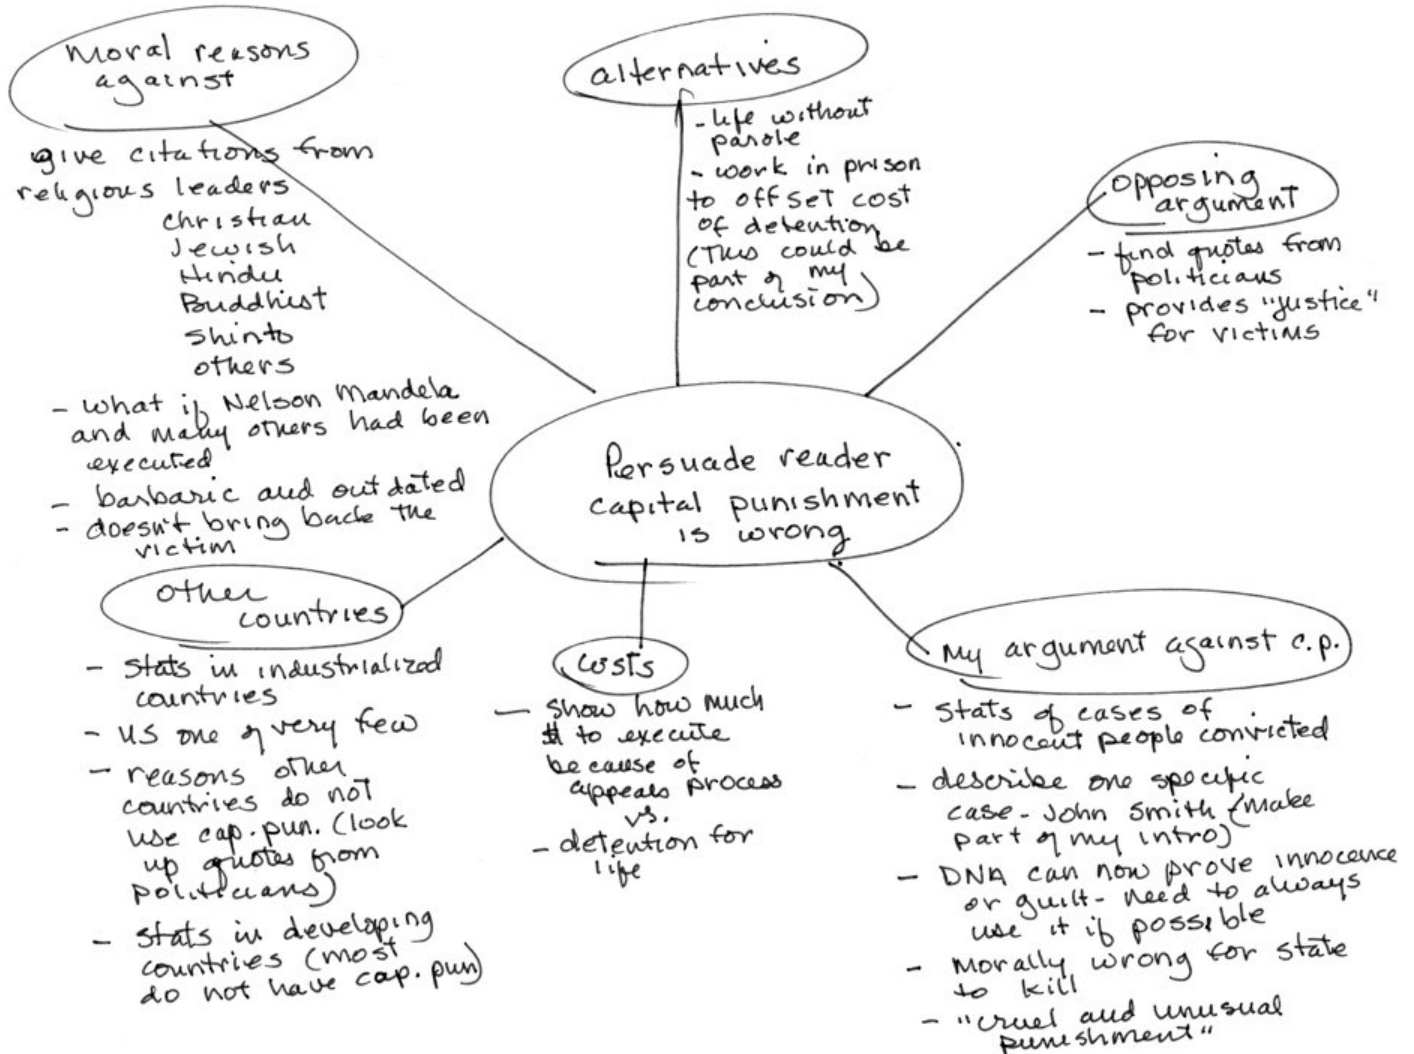 Moral reasons
against
give citations from
religious leaders
Christian
Jewish
Hindu
Buddhist
Shinto
others
- what if Nelson Mandela
and many others had been
executed
- barbaric and outdated
- doesn't bring back the
victim
alternatives
- life without
parole
- work in prison
to offset cost
of detention
(This could be
part of my
conclusion)
opposing
argument
- find quotes from
politicians
- provides "justice"
for victims
Persuade reader
capital punishment
is wrong
other
countries
- stats in industrialized
countries
- US one of very few
- reasons other
countries do not
use cap. pun. (look
up quotes from
politicians)
- stats in developing
countries (most
do not have cap. pun)
costs
- show how much
$ to execute
because of
appeals process
vs.
- detention for
life
My argument against c.p.
- stats of cases of
innocent people convicted
- describe one specific
case - John Smith (make
part of my intro)
- DNA can now prove innocence
or guilt - need to always
use it if possible
- Morally wrong for state
to kill
- "cruel and unusual
punishment"